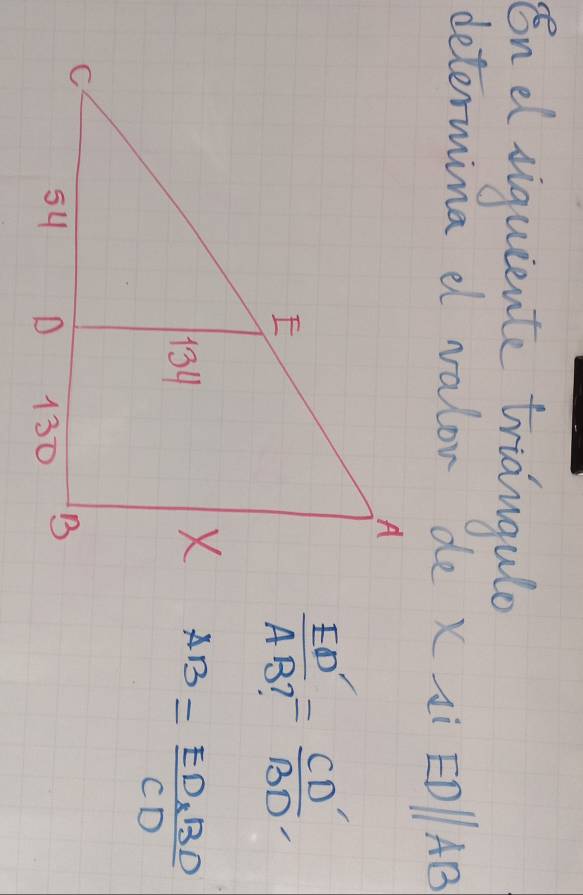 En el siguiente triángulo
determina el valor de X si ED//AB
A
E
134
X
C 54 D 130 B
ED' / AB? = CD' / BD'
AB = ED x BD / CD